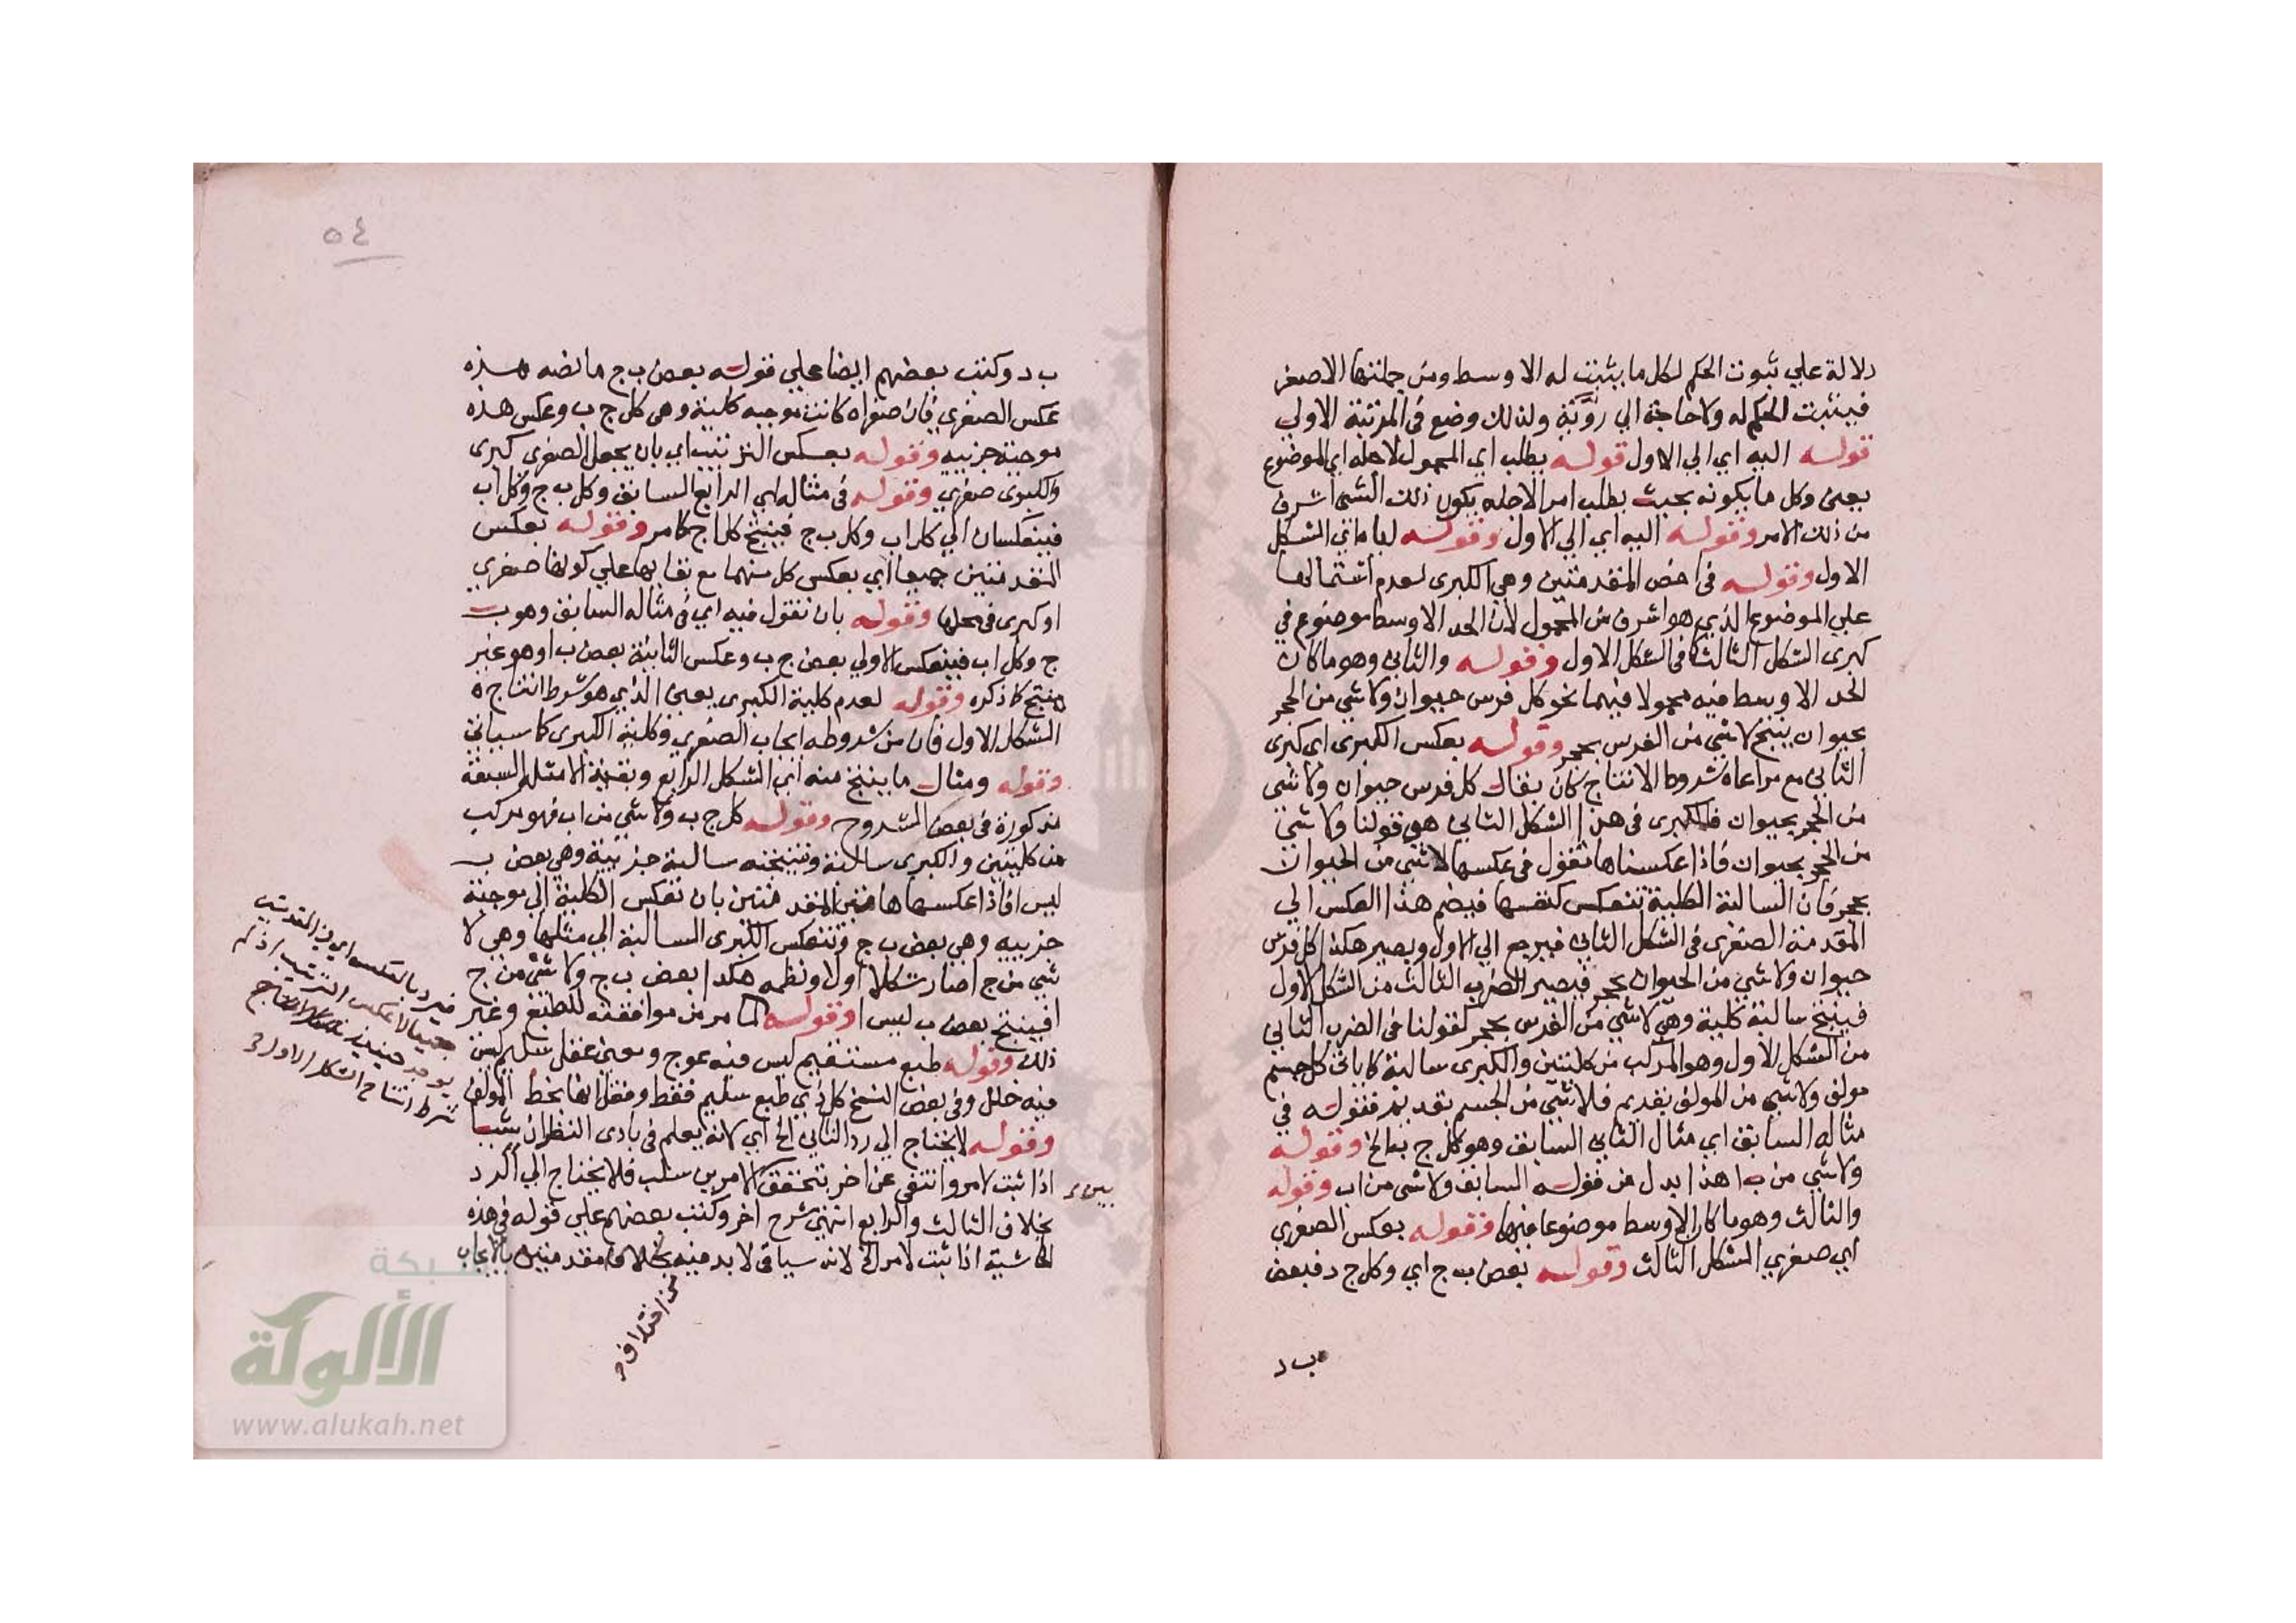 دلالة علي ثبوت الحكم لكل ما يثبت له الاوسط ومن جملتها الاصغر
فيثبت الحكم له ولا حاجة الي روية ولذلك وضع في المرتبة الاولي
قوله اليه اي الي الاول قوله يطلب اي المحمول لاجله اي الموضوع
يعين وكل ما يكونه بحيث يطلب امر لاجله يكون ذلك الشي اشرف
من ذلك الامر وقوله اليه اي الي الاول وقوله اي الشكل
الاول وقوله في اخص المقدمتين وهي الكبرى لعدم اشتمالها
علي الموضوع الذي هو اشرف من المحمول لان الحد الاوسط موضوع في
كبرى الشكل الثالث كما في الشكل الاول وقوله والثاني وهو ما كان
الحد الاوسط فيه محمولا فيهما نحو كل فرس حيوان ولا شي من الحجر
بحيوان ينتج لا شي من الفرس بحجر وقوله بعكس الكبرى اي كبرى
الثاني مع مراعاة شروط الانتاج كان يقال كل فرس حيوان ولا شي
من الحجر بحيوان فالكبرى في هذا الشكل الثاني هي قولنا ولا شي
من الحجر بحيوان فاذا عكسناها نقول في عكسها لا شي من الحيوان
بحجر فان السالبة الكلية تنعكس كنفسها فيضم هذا العكس الي
المقدمة الصغرى في الشكل الثاني فيرجع الي الاول ويصير هكذا كل فرس
حيوان ولا شي من الحيوان بحجر فيصير الضرب الثالث من الشكل الاول
فينتج سالبة كلية وهي لا شي من الفرس بحجر كقولنا في الضرب الثاني
من الشكل الاول وهو المركب من كليتين والكبرى سالبة كما ياتي كل جسم
مولف ولا شي من المولف بقديم فلا شي من الجسم بقديم فقوله في
مثاله السابق اي مثال الثاني السابق وهو كل ج ب الخ وقوله
ولا شي من ب ا هذا بدل من قوله السابق ولا شي من ا ب وقوله
والثالث وهو ما كان الاوسط موضوعا فيها وقوله بعكس الصغري
اي صغري الشكل الثالث وقوله بعض ب ج اي وكل ج د فبعض
ب د
٥٤
ب د وكتب بعضهم ايضا علي قوله بعض ب ج ما نصه هذه
عكس الصغرى فان صغراه كانت موجبه كلية وهي كل ج ب وعكس هذه
موجبة جزييه وقوله بعكس الترتيب اي بان يجعل الصغرى كبرى
والكبرى صغري وقوله في مثاله اي الرابع السابق وكل ب ج وكل ا ب
فينعكسان الي كل ا ب وكل ب ج فينتج كل ا ج كما مر وقوله بعكس
المقدمتين جميعا اي بعكس كل منهما مع بقايها علي كونها صغري
او كبرى في محلها وقوله بان نقول فيه اي في مثاله السابق وهو ب
ج وكل ا ب فينعكس الاولي بعض ج ب وعكس الثانية بعض ب ا وهو غير
منتج كما ذكره وقوله لعدم كلية الكبرى يعين الذي هو شرط انتاج
الشكل الاول فان من شروطه ايجاب الصغري وكلية الكبرى كما سياتي
وقوله ومثال ما ينتج منه اي الشكل الرابع وبقية الامثله السبقة
مذكورة في بعض الشروح وقوله كل ج ب ولا شي من ا ب فهو مركب
من كليتين والكبرى سالبة ونتيجته سالبة جزيية وهي بعض ب
ليس ا فاذا عكسها هاتين المقدمتين بان تعكس الكلية الي موجبة
جزييه وهي بعض ب ج وتنعكس الكبرى السالبة الي مثلها وهي لا
شي من ج ا صار شكلا اول ونظمه هكذا بعض ب ج ولا شي من ج
ا فينتج بعض ب ليس ا وقوله لما مر من موافقته للطبع وغير
ذلك وقوله طبع مستقيم ليس فيه عوج ومعين عقل سليم ليس
فيه خلل وفي بعض النسخ كل ذي طبع سليم فقط ونقل انها بخط المولف
وقوله لا يحتاج الي رد الثاني الخ اي لانه يعلم في بادى النظر ان شيا
اذا ثبت لامر وانتفى عن اخر تحقق الامرين سلب فلا يحتاج الي الرد
بخلاف الثالث والرابع انتهي شرح اخر وكتب بعضهم علي قوله في هذه
الحاشية اذا ثبت لامر الخ لانه سياتي لا بد فيه مقدمتيه بالايجاب
بين
من اختلاف
فيرد بالعكس اي
جميعا لا عكس الترتيب اذ لم
يوجد حينيذ
شرط انتاج الشكل الاول
شبكة
الألوكة
www.alukah.net